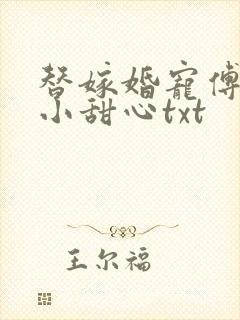 替嫁婚宠傅
小甜心txt
王尔福